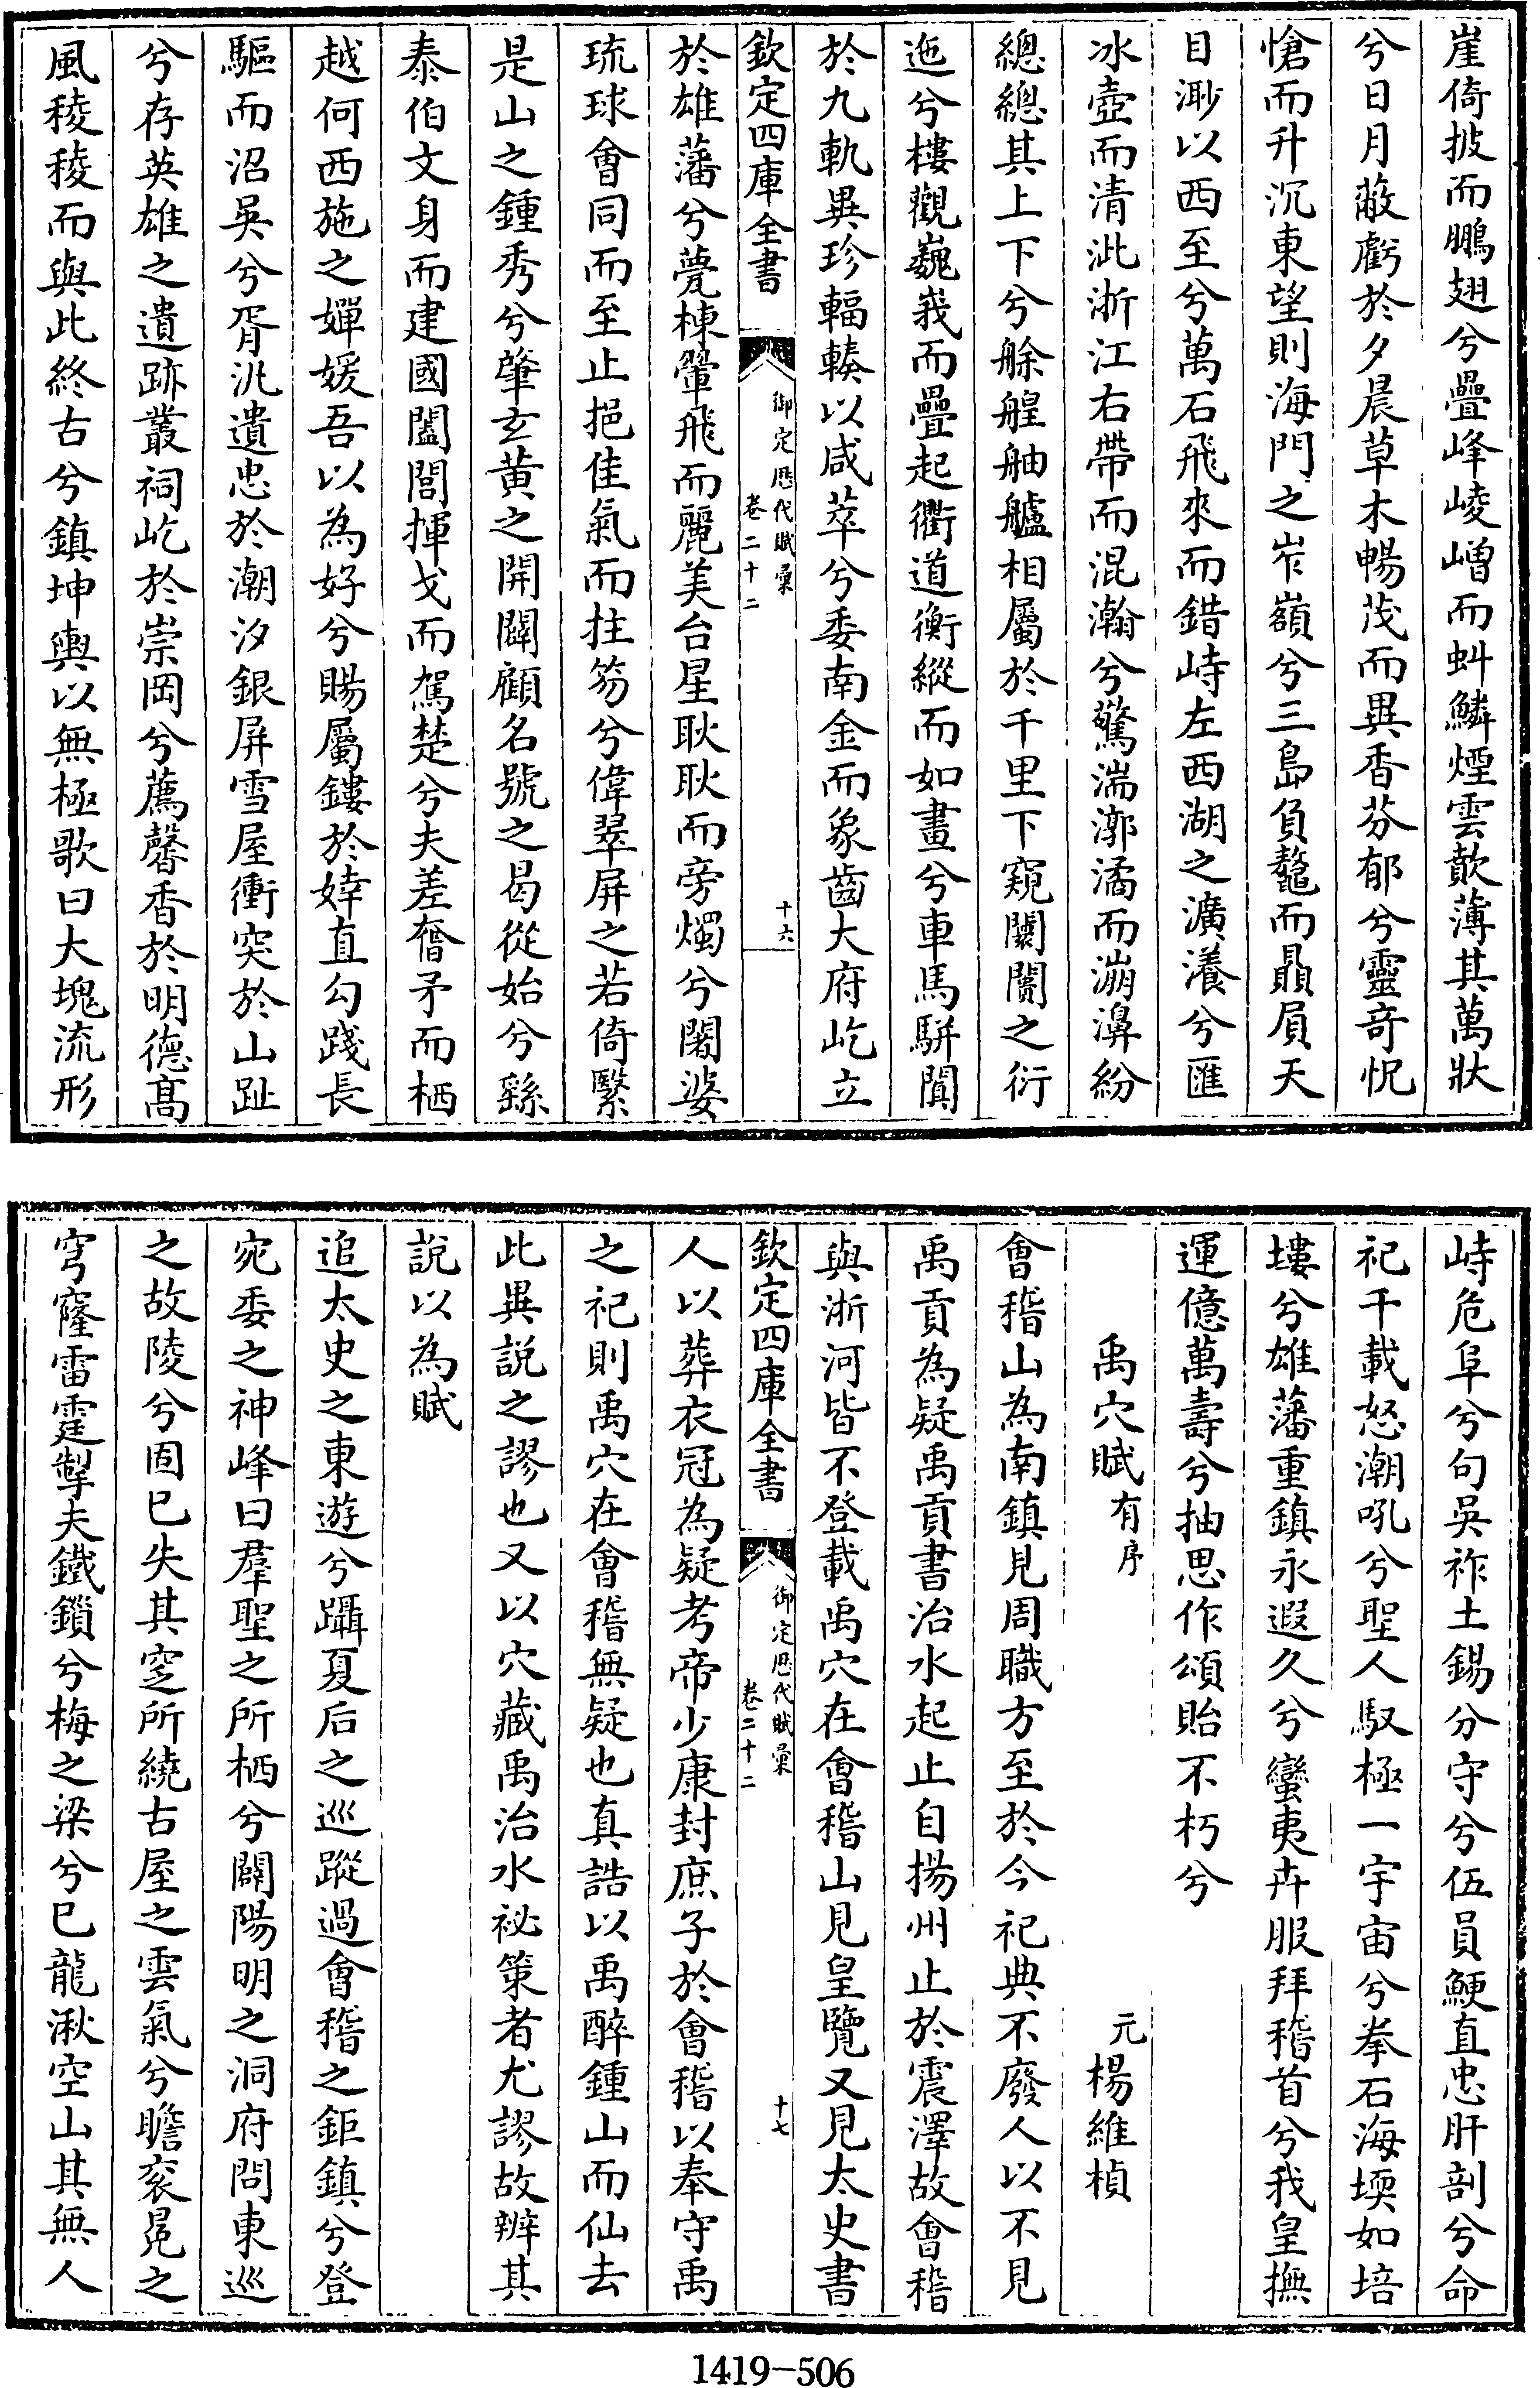 崖倚披而鵬翅兮疊峰崚嶒而虯鱗煙雲歕薄其萬狀
兮日月蔽虧於夕晨草木暢茂而異香芬郁兮靈奇怳
愴而升沉東望則海門之岝嶺兮三島負鼇而贔屓天
目渺以西至兮萬石飛來而錯峙左西湖之瀇瀁兮匯
冰壺而清泚浙江右帶而混瀚兮驚湍漷潏而漰濞紛
總總其上下兮艅艎舳艫相屬於千里下窺闤闠之衍
迤兮樓觀巍峩而疊起衢道衡縱而如畫兮車馬駢闐
於九軌異珍輻輳以咸萃兮委南金而象齒大府屹立
欽定四庫全書
御定歴代賦彙
卷二十二
十六
於雄藩兮甍棟翬飛而麗美台星耿耿而旁燭兮闍婆
琉球會同而至止挹佳氣而拄笏兮偉翠屏之若倚繄
是山之鍾秀兮肇玄黃之開闢顧名號之曷從始兮繇
泰伯文身而建國闔閭揮戈而駕楚兮夫差奮矛而栖
越何西施之嬋媛吾以為好兮賜屬鏤於婞直勾踐長
驅而沼吳兮胥沘遺忠於潮汐銀屏雪屋衝突於山趾
兮存英雄之遺跡叢祠屹於崇岡兮薦馨香於明德髙
風稜稜而與此終古兮鎮坤輿以無極歌曰大塊流形
峙危阜兮句吳祚土錫分守兮伍員鯁直忠肝剖兮命
祀千載怒潮吼兮聖人馭極一宇宙兮拳石海堧如培
塿兮雄藩重鎮永遐久兮蠻夷卉服拜稽首兮我皇撫
運億萬壽兮抽思作頌貽不朽兮
禹穴賦有序 元楊維楨
會稽山為南鎮見周職方至於今祀典不廢人以不見
禹貢為疑禹貢書治水起止自揚州止於震澤故會稽
與浙河皆不登載禹穴在會稽山見皇覽又見太史書
欽定四庫全書
御定歴代賦彙
卷二十二
十七
人以葬衣冠為疑考帝少康封庶子於會稽以奉守禹
之祀則禹穴在會稽無疑也真誥以禹醉鍾山而仙去
此異説之謬也又以穴藏禹治水祕策者尤謬故辨其
說以為賦
追太史之東遊兮躡夏后之巡蹤過會稽之鉅鎮兮登
宛委之神峰曰羣聖之所栖兮闢陽明之洞府問東巡
之故陵兮固已失其窆所繞古屋之雲氣兮瞻衮冕之
穹窿雷霆掣夫鐵鎖兮梅之梁兮已龍湫空山其無人
1419-506